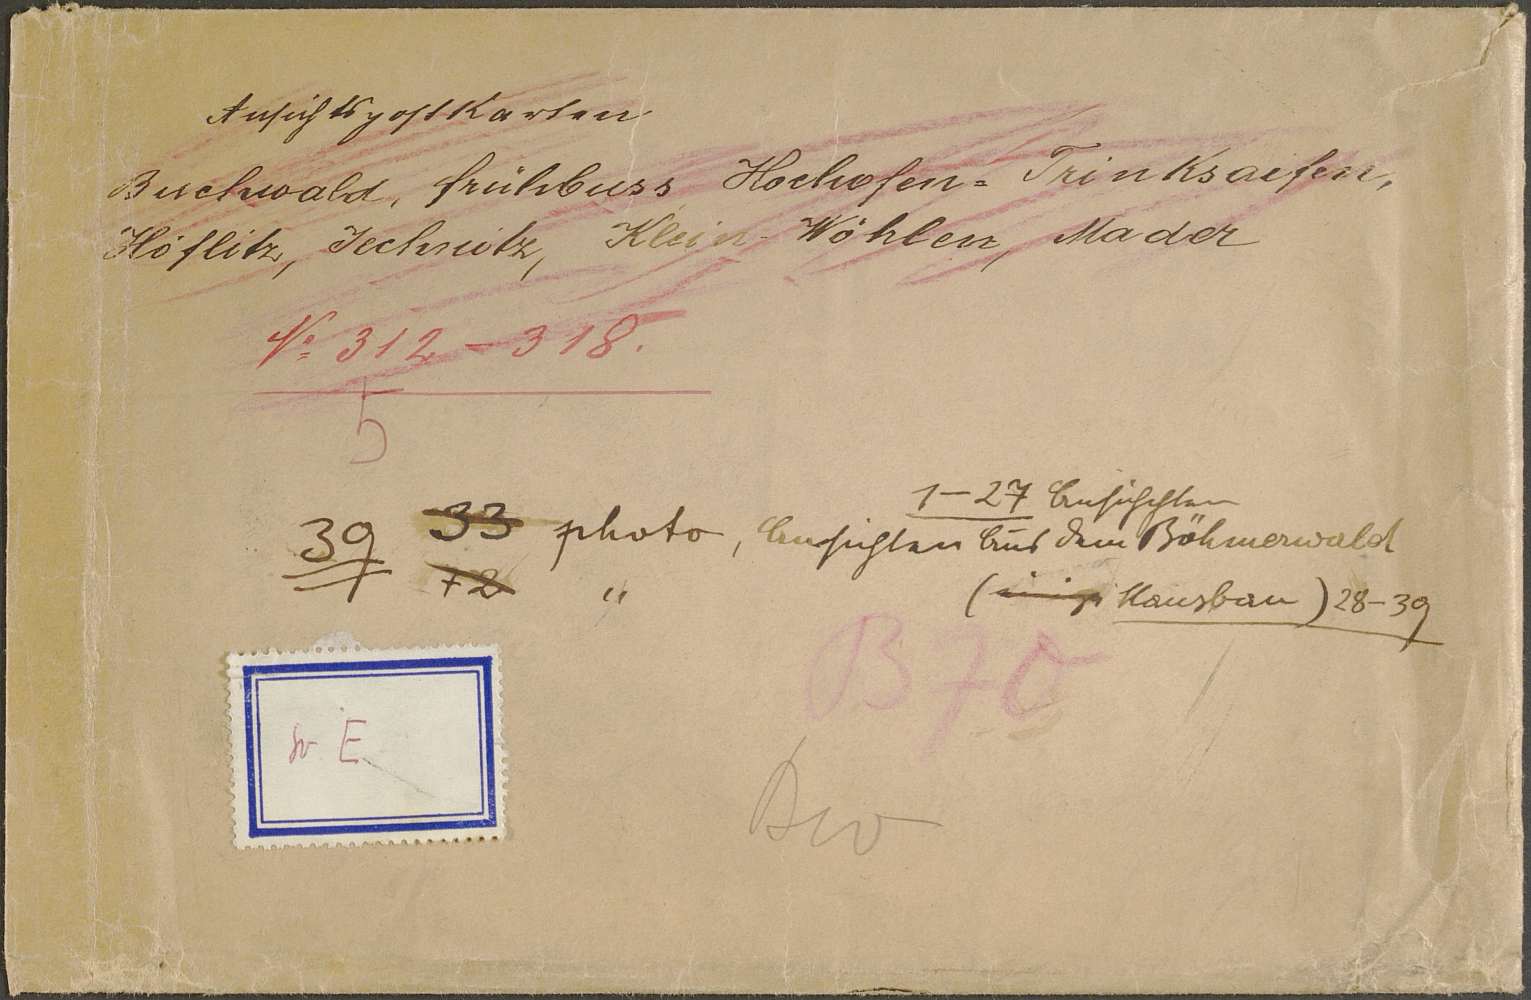 Ansichtspostkarten
Buchwald, Frühbuss, Hochofen= Trinksaifen,
Höflitz, Jechnitz, Klein-Wöhlen, Mader
№ 312-318.
5
1-27 Ansichten
39 33 photo, Ansichten aus dem Böhmerwald
72 "
( Hausbau) 28-39
B 70
E